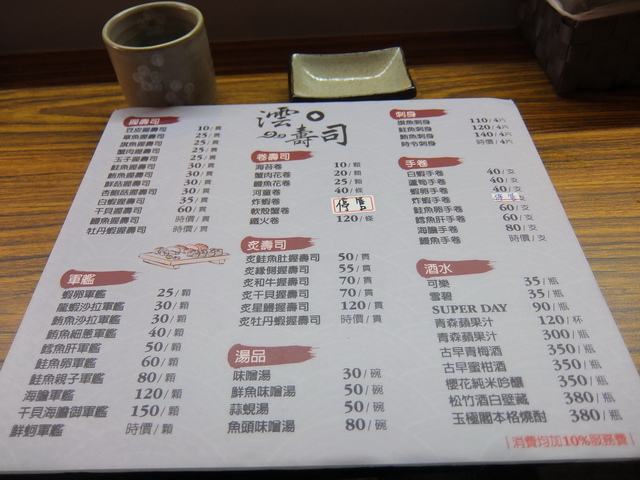 澐
壽司
握壽司
豆皮握壽司 10/貫
章魚握壽司 25/貫
旗魚握壽司 25/貫
蟹肉握壽司 25/貫
玉子握壽司 25/貫
鮭魚握壽司 30/貫
鮪魚握壽司 30/貫
鮮菇握壽司 30/貫
杏鮑菇握壽司 30/貫
白蝦握壽司 35/貫
干貝握壽司 60/貫
鰻魚握壽司 時價/貫
牡丹蝦握壽司 時價/貫
軍艦
蝦卵軍艦 25/顆
龍蝦沙拉軍艦 30/顆
鮪魚沙拉軍艦 30/顆
鮪魚細蔥軍艦 40/顆
鱈魚肝軍艦 50/顆
鮭魚卵軍艦 60/顆
鮭魚親子軍艦 80/顆
海膽軍艦 120/顆
干貝海膽御軍艦 150/顆
鮮蚵軍艦 時價/顆
卷壽司
海苔卷 10/顆
蟹肉花卷 20/顆
鰻魚花卷 25/顆
河童卷 40/條
炸蝦卷 停售
軟殼蟹卷
鐵火卷 120/條
炙壽司
炙鮭魚肚握壽司 50/貫
炙緣側握壽司 55/貫
炙和牛握壽司 70/貫
炙干貝握壽司 70/貫
炙星鰻握壽司 120/貫
炙牡丹蝦握壽司 時價/貫
湯品
味噌湯 30/碗
鮮魚味噌湯 50/碗
蒜蜆湯 50/碗
魚頭味噌湯 80/碗
刺身
旗魚刺身 110/4片
鮭魚刺身 120/4片
鮪魚刺身 140/4片
時令刺身 時價/4片
手卷
白蝦手卷 40/支
蘆筍手卷 40/支
蝦卵手卷 40/支
炸蝦手卷 停售
鮭魚卵手卷 60/支
鱈魚肝手卷 60/支
海膽手卷 80/支
鰻魚手卷 時價/支
酒水
可樂 35/瓶
雪碧 35/瓶
SUPER DAY 90/瓶
青森蘋果汁 120/杯
青森蘋果汁 300/瓶
古早青梅酒 350/瓶
古早蜜柑酒 350/瓶
櫻花純米吟釀 350/瓶
松竹酒白壁藏 380/瓶
玉極閣本格燒酎 380/瓶
消費均加10%服務費